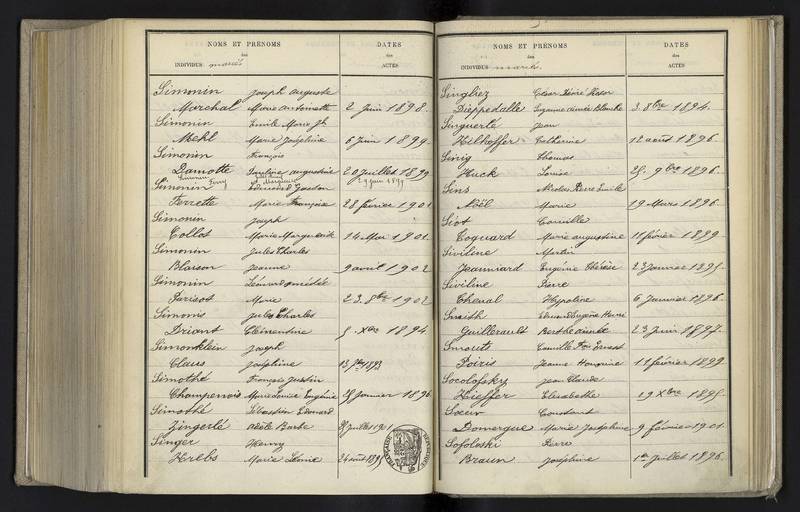 NOMS ET PRÉNOMS
des
INDIVIDUS mariés
DATES
des
ACTES
Simonin Joseph auguste
Marchal Marie antoinette 2 Juin 1898.
Simonin Emile Marie Jh
Mehl Marie Joséphine 6 Juin 1899.
Simonin François
Damotte Pauline augustine 20 Juillet 1899
29 Juin 1899
Simonin Edmond Gaston
Ferrette Marie Françoise 28 février 1901
Simonin Joseph
Collot Marie Marguerite 14 Mai 1901.
Simonin Jules Charles
Blaison Jeanne 9 avril 1902
Simonin Léonard amédée
Parisot Marie 23. 8bre 1902
Simonis Jules Charles
Driant Clémentine 5. Xbre 1894
Simonklein Joseph
Claus Joséphine 13 7bre 1893
Simothé François Justin
Champenois Marie Louise Eugénie 25 Janvier 1896
Simothé Sébastien Edouard
Zingerlé adèle Barbe 25 Juillet 1901
Singer Henry
Krebs Marie Léonie 24 août 1895
NOMS ET PRÉNOMS
des
INDIVIDUS mariés.
DATES
des
ACTES
Singliez César Désiré
Dieppedalle Suzanne aimée Blanche 3. 8bre 1894.
Singuerlé Jean
Hilthoffer Catherine 12 août 1896.
Sinig Thomas
Huck Louise 25. 9bre 1896.
Sins Nicolas Pierre Emile
Noël Marie 19 Mars 1896.
Siot Camille
Coquard Marie augustine 11 février 1899.
Siviline Martin
Jeanniard Eugénie Thérèse 23 Janvier 1895.
Siviline Pierre
Cheval Hypoline 6 Janvier 1896.
Smith Edouard Eugène Henri
Guillerault Berthe aimée 23 Juin 1897.
Smouts Camille Ernest
Poiris Jeanne Honorine 11 février 1899.
Socolofsky Jean Claude
Kieffer Elisabethe 19 Xbre 1895.
Sœur Constant
Domergue Marie Joséphine 9 février 1901.
Sofoloski Pierre
Braun Joséphine 1er Juillet 1896.